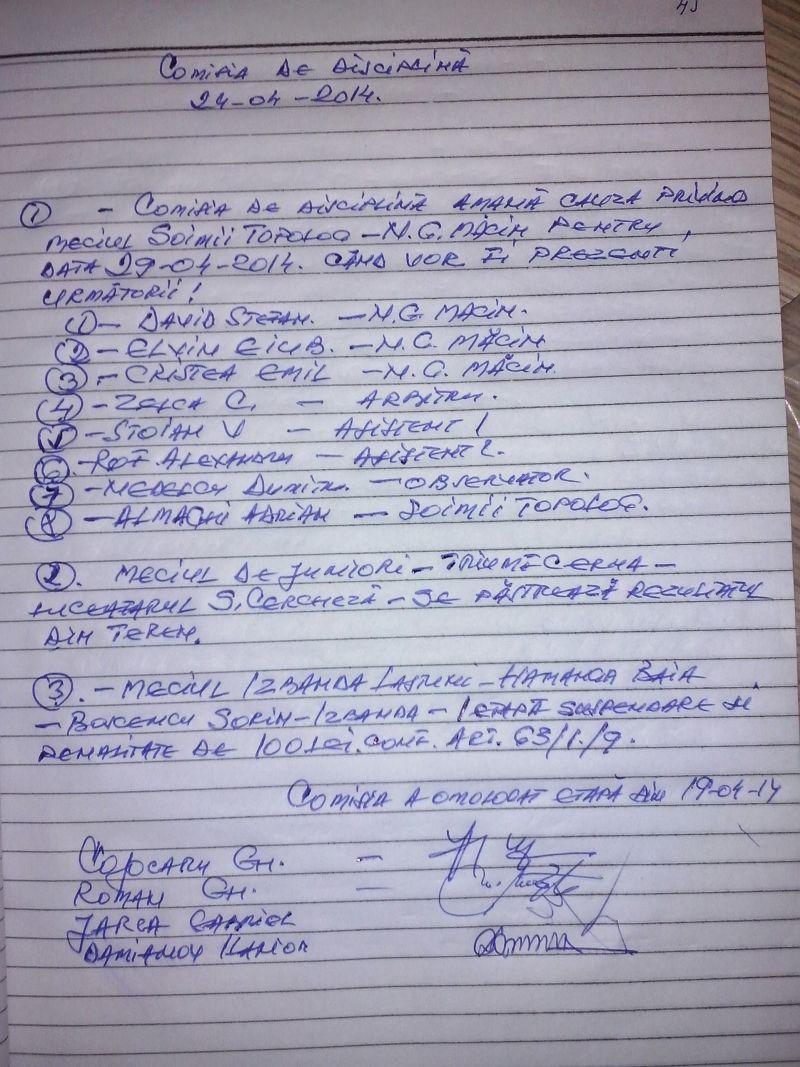 45
COMISIA DE DISCIPLINĂ
24-04-2014.
① - COMISIA DE DISCIPLINĂ AMANĂ CAUZA PRIVIND
MECIUL SOIMII TOPOLOG - N.G. MĂCIN PENTRU
DATA 29-04-2014. CÂND VOR FI PREZENTI,
URMĂTORII!
① - DAVID STEFAN. - N.G MACIN.
② - ELVIN EIUB. - N.G. MĂCIN
③ - CRISTEA EMIL - N.G. MĂCIN.
④ - ZELCA C. - ARBITRU.
⑤ - STOIAN V - ASISTENT 1
⑥ - ALEXANDRU - ASISTENT 2.
⑦ - DUMITRU. - OBSERVATOR.
⑧ - ALMAGHI ADRIAN - SOIMII TOPOLOG.
②. MECIUL DE JUNIORI - TRIUMF CERNA -
LUCEAFARUL S. CERCHEZĂ - SE PĂSTREAZĂ REZULTATUL
DIN TEREN.
③. - MECIUL IZBANDA IASTURNI - HAMANGIA BAIA
- SORIN - IZBANDA - 1 ETAPĂ SUSPENDARE SI
PENALITATE DE 100 LEI. CONF. ART. 63/1./9.
COMISIA A OMOLOGAT ETAPĂ DIN 19-04-14
COJOCARU GH. -
ROMAN GH. -
JARCA GABRIEL
DAMIANOV ILARION